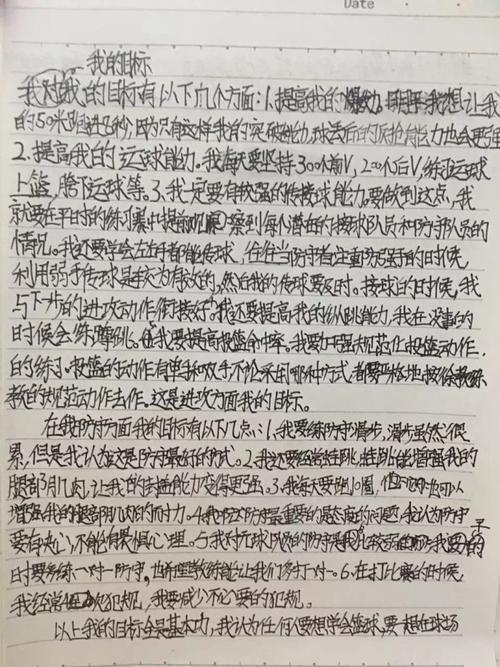 Date
我的目标
我对我的目标有以下几个方面：1.提高我的爆发力，明年我想让我
的50米跑进6秒，因为只有这样我的突破能力，球丢后的反抢能力也会更强
2.提高我的运球能力。我每天要坚持300个前V，200个后V，练习运球
上篮，胯下运球等。3、我一定要有较强的传接球能力，要做到这点，我
就要在平时的练习赛中提前观察到每个潜在的接球队员和防守队员的
情况。我还要学会左右手都能传球，往往当防守者注重防强手的时候
利用弱手传球是较为有效的，然后我的传球要及时。接球的时候，我
与下一步的进攻动作衔接好，我还要提高我的纵跳能力，我在没事的
时候会练摩跳。我要提高投篮命中率。我要加强规范化投篮动作
的练习。投篮的动作有单手和双手，不论采用哪种方式都要严格地按徐教练
教的规范动作去作。这是进攻方面我的目标。
在我防守方面我的目标有以下几点：1.我要练防守滑步，滑步虽然很
累，但是我认为这是防守最好的方式。2.我还要经常蛙跳，蛙跳能增强我的
腿部肌肉，让我的封盖能力变得更强。3.我每天要跑10圈，也可以
增强我的腿部肌肉的耐力。4.我认为防守最重要的是态度的问题，我认为防守
要有决心，不能有畏惧心理。5.我对无球队员的防守是我比较弱的，我要
时要多练一对一防守，也希望教练能让我们多打一对一。6.在打比赛的时候，
我经常犯规，我要减少不必要的犯规。
以上我的目标全是基本功，我认为任何人要想学会篮球，要想在球场